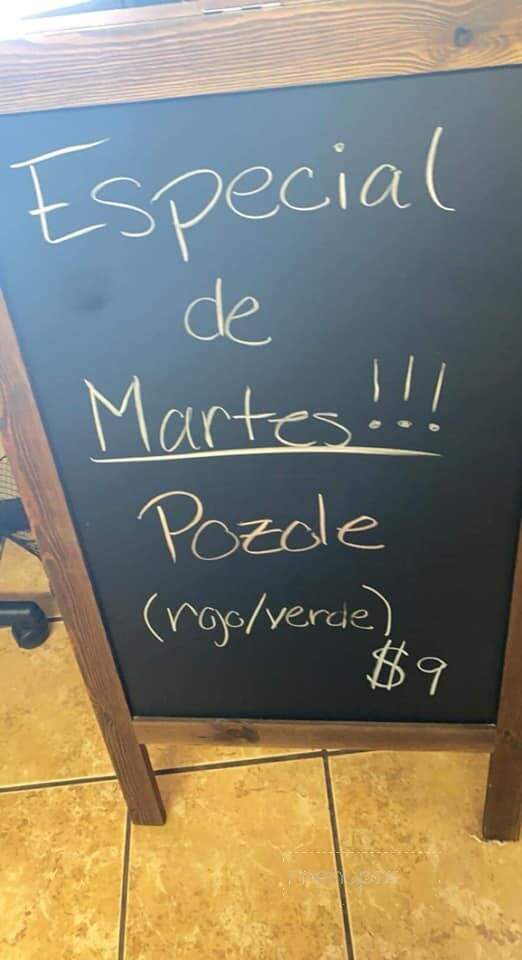 Especial
de
Martes!!!
Pozole
(rojo/verde)
$9
menupix